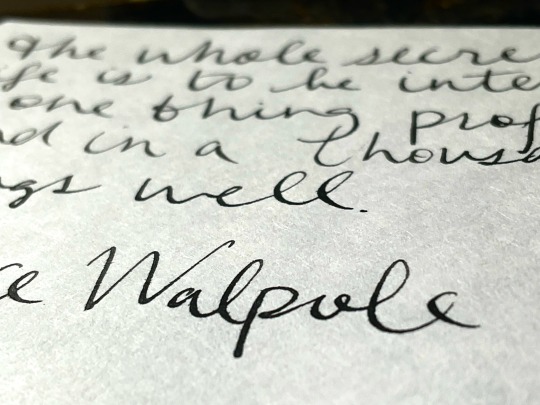 The whole secre
ife is to be inte
one thing prof
nd in a thousa
ngs well.
ce Walpole